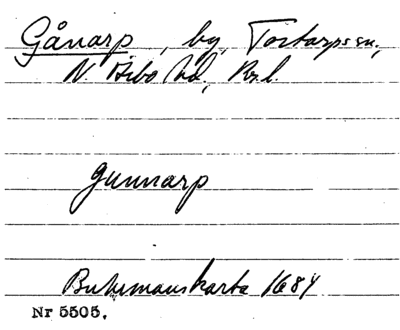 Gånarp, by, Tåstarps sn,
N. Åsbo hd, Krl.
Gunnarp
Buhrmans karta 1684
Nr 5505.